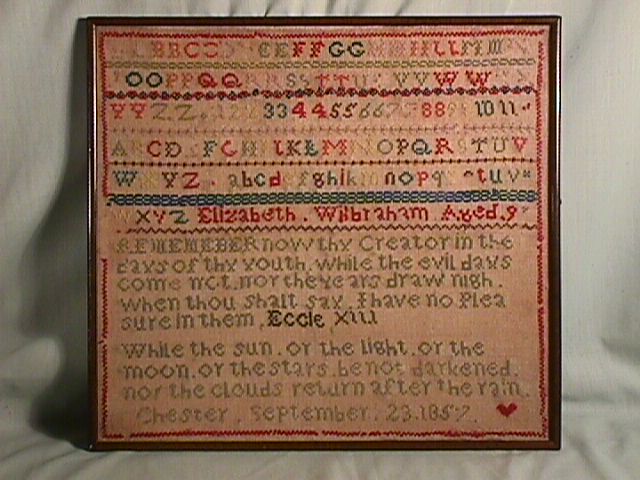 B B C C D E E F F G G H H
O O P P Q Q R R S S T T U V V W W
Y Y Z Z 3 3 4 4 5 5 6 6 7 7 8 8 9 10 11
A B C D F G H I K L M N O P Q R S T U V
W X Y Z . a b c d e f g h i k l m n o p q t u v
W X Y Z Elizabeth . Wilbraham Aged . 9
REMEMEBER now thy Creator in the
days of thy youth , while the evil days
come not , nor the years draw nigh .
when thou shalt say , I have no Plea
sure in them , Eccle , XIII
While the sun . or the light . or the
moon . or the stars . be not darkened .
nor the clouds return after the rain .
Chester , September . 23. 1857 .